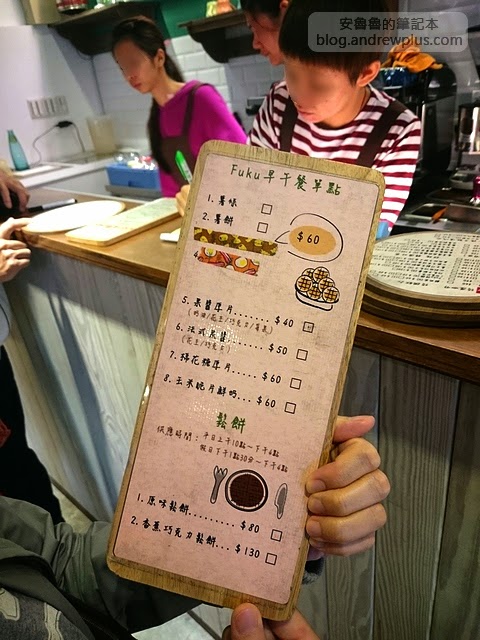 安魯魯的筆記本
blog.andrewplus.com
Fuku早午餐單點
1. 薯味
2. 薯餅
$60
4.
5. 果醬厚片....... $40
(奶油/花生/巧克力/草莓)
6. 法式果醬....... $50
(花生/巧克力)
7. 棉花糖厚片.... $60
8. 玉米脆片鮮奶... $60
鬆餅
供應時間：平日上午10點~下午6點
假日下午1點30分~下午6點
1. 原味鬆餅......... $80
2. 香蕉巧克力鬆餅... $130